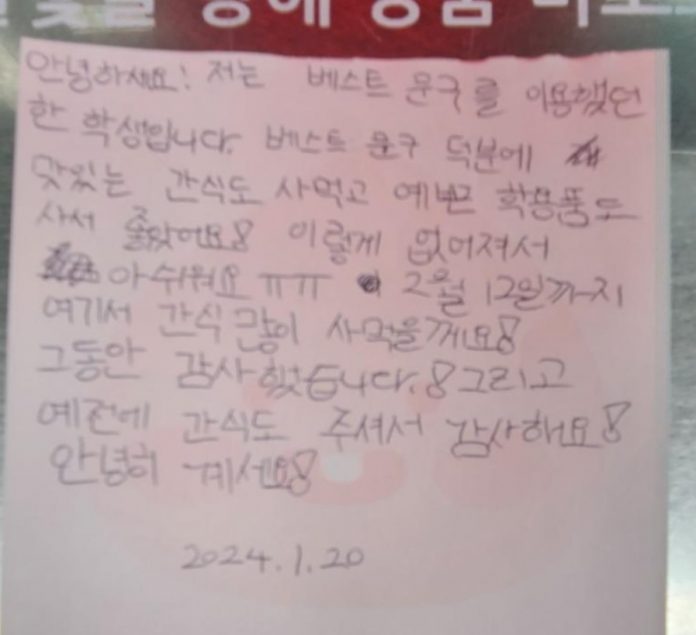 안녕하세요! 저는 베스트 문구를 이용했던
한 학생입니다. 베스트 문구 덕분에
맛있는 간식도 사먹고 예쁜 학용품도
사서 좋았어요! 이렇게 없어져서
아쉬워요 ㅠㅠ 2월 12일까지
여기서 간식 많이 사먹을게요!
그동안 감사했습니다.! 그리고
예전에 간식도 주셔서 감사해요!
안녕히 계세요!
2024.1.20